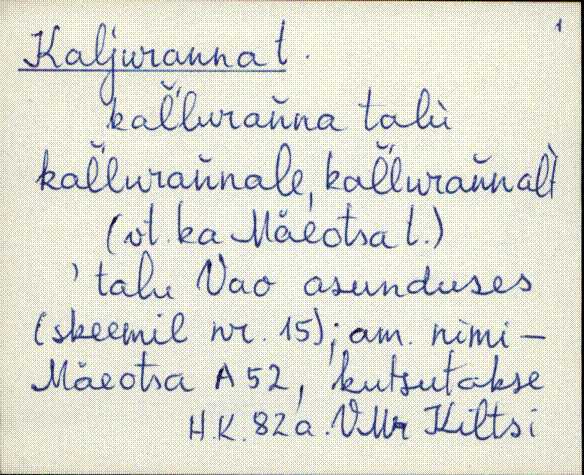 1
Kaljuranna t.
kal̆'l̆urañna talù
kal̆'l̆urañnale, kal̆'l̆urañnalt̀
(vt. ka Mäeotsa t.)
' talu Vao asunduses
(skeemil nr. 15); am. nimi –
Mäeotsa A 52, kutsutakse
H.K. 82 a. VMr Kiltsi